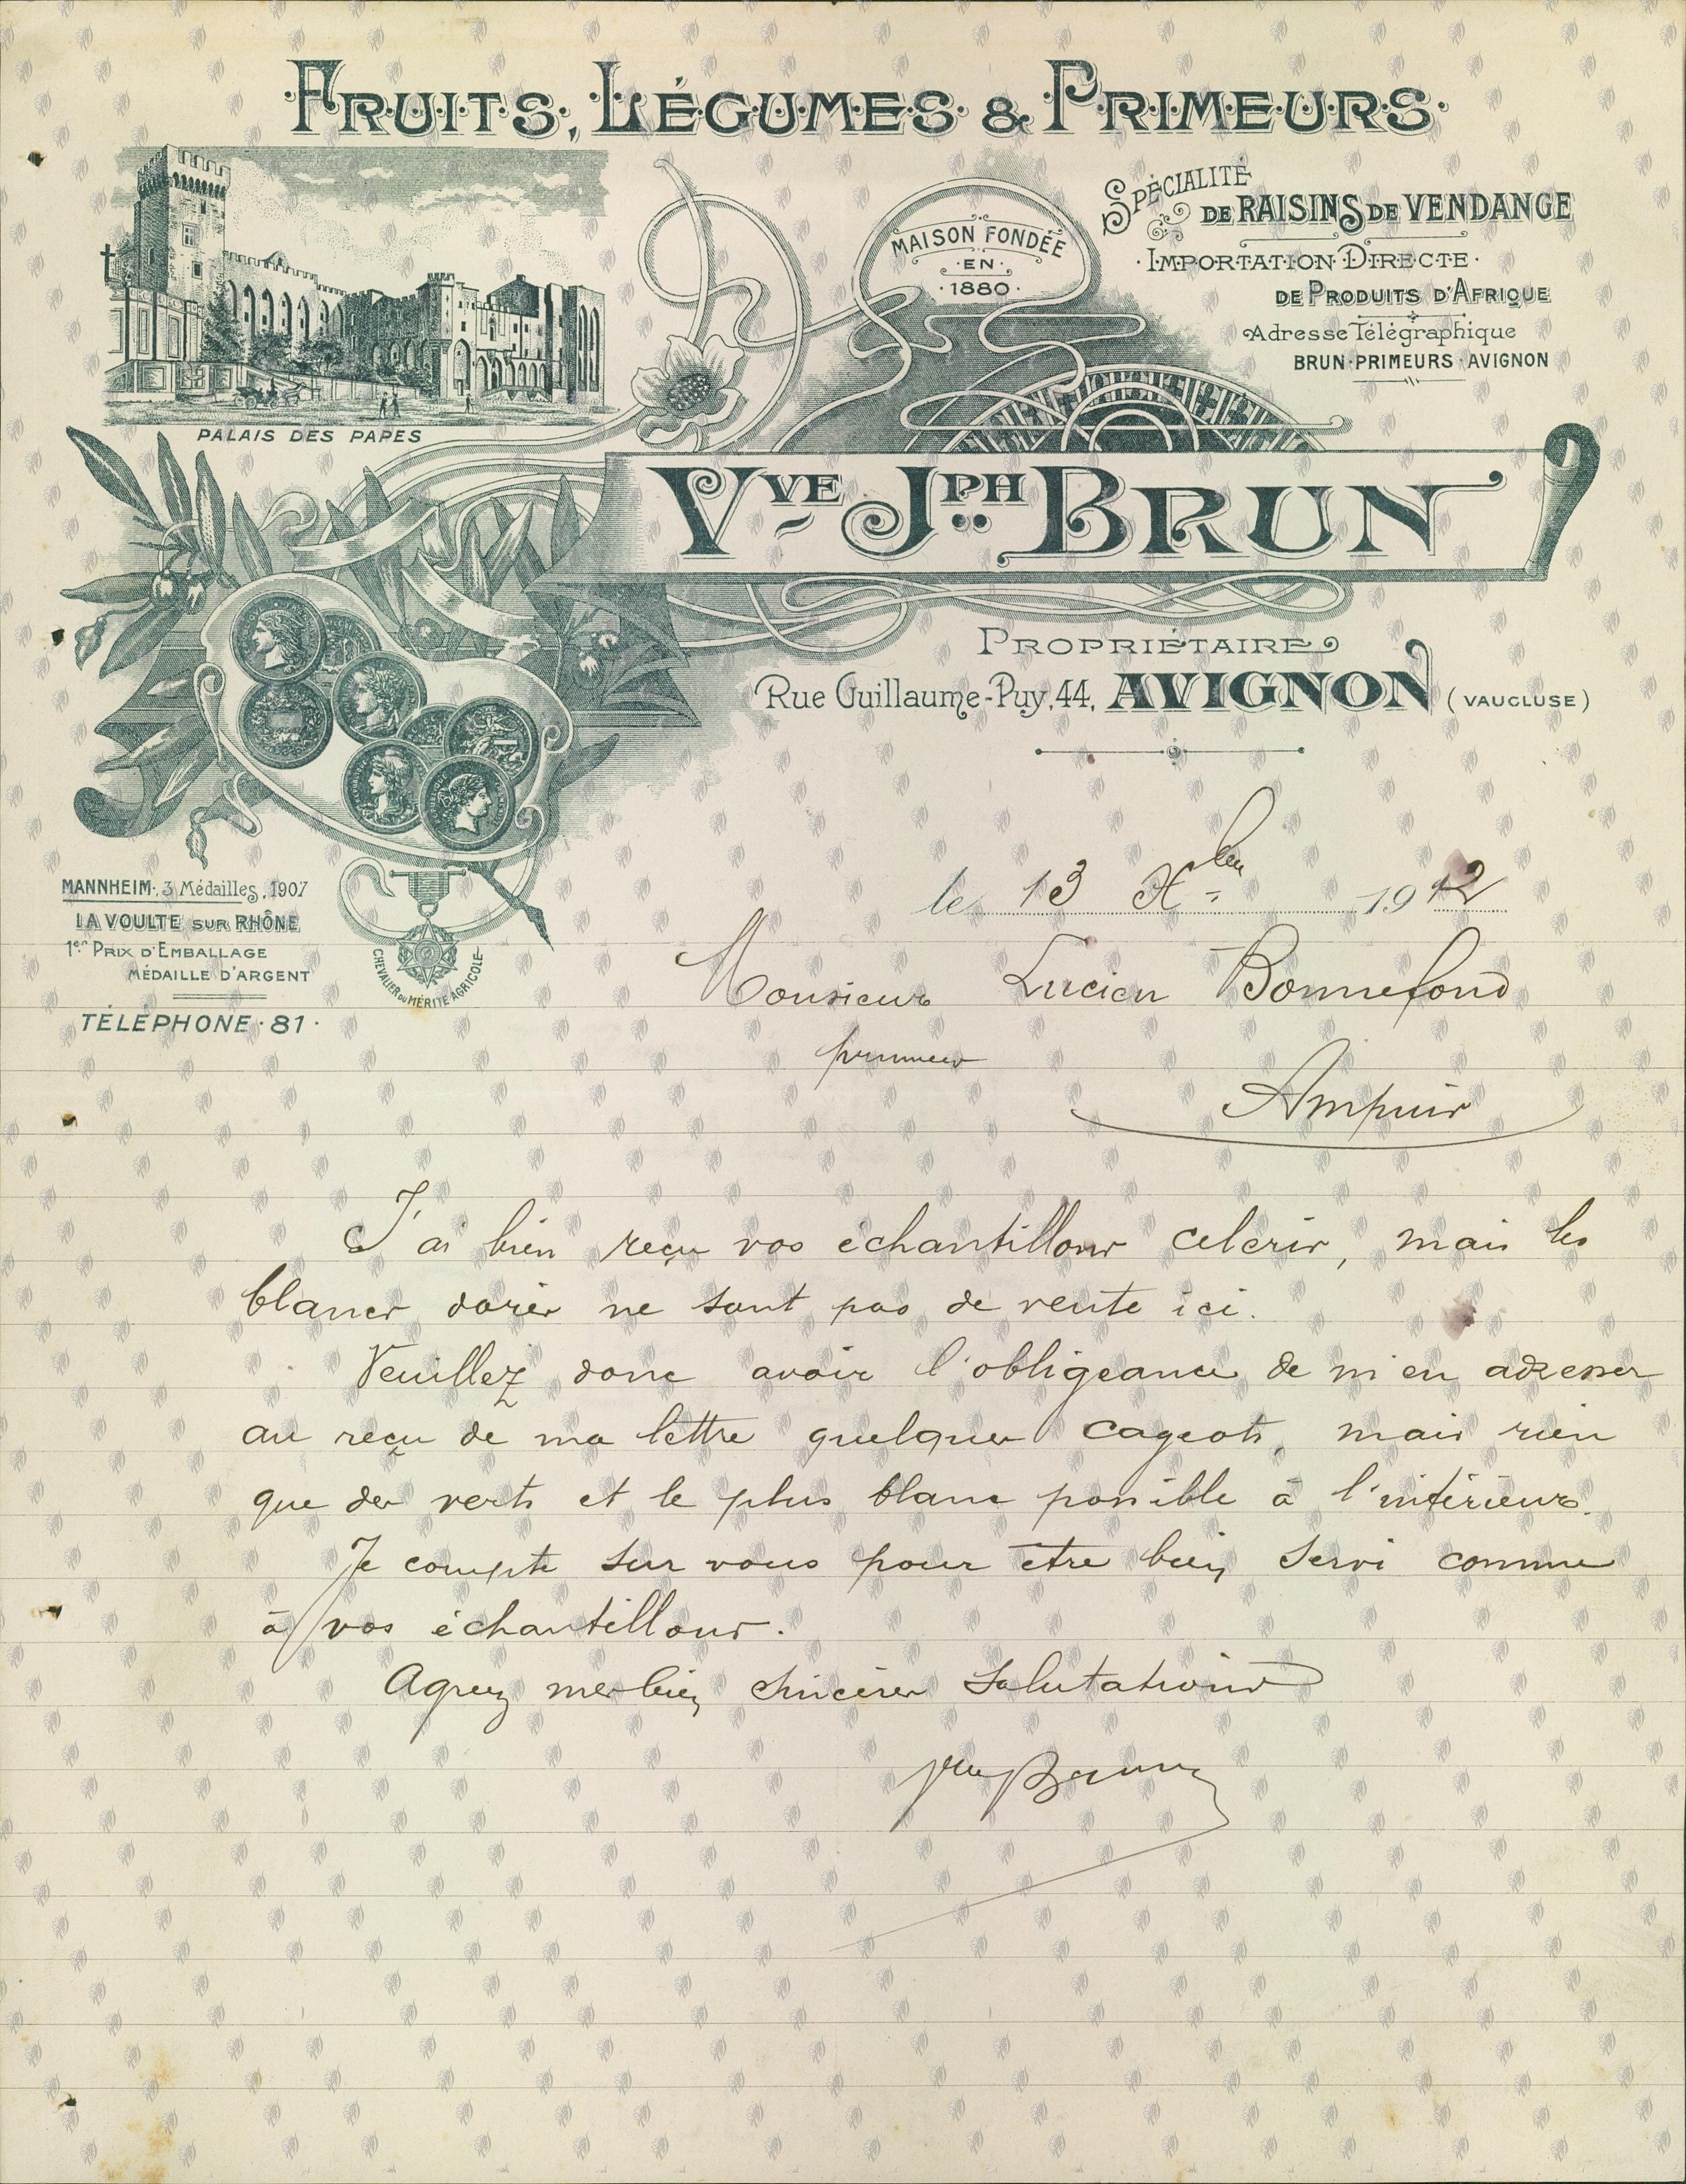 FRUITS, LÉGUMES & PRIMEURS
SPÉCIALITÉ
DE RAISINS DE VENDANGE
IMPORTATION DIRECTE
DE PRODUITS D'AFRIQUE
Adresse Télégraphique
BRUN-PRIMEURS-AVIGNON
MAISON FONDÉE
EN
1880
PALAIS DES PAPES
VVE JPH BRUN
PROPRIÉTAIRE
Rue Guillaume-Puy, 44, AVIGNON (VAUCLUSE)
MANNHEIM, 3 Médailles, 1907
LA VOULTE SUR RHÔNE
1er PRIX D'EMBALLAGE
MÉDAILLE D'ARGENT
CHEVALIER DU MÉRITE AGRICOLE
TÉLÉPHONE · 81 ·
le 13 Xbre 1912
Monsieur Lucien Bonnefond
primeur
Ampuis
J'ai bien reçu vos échantillons celeris, mais les
blancs dorés ne sont pas de vente ici.
Veuillez donc avoir l'obligeance de m'en adresser
au reçu de ma lettre quelques cageots, mais rien
que des verts et le plus blanc possible à l'intérieur.
Je compte sur vous pour être bien servi comme
à vos échantillons.
Agréez mes bien sincères salutations
Brun